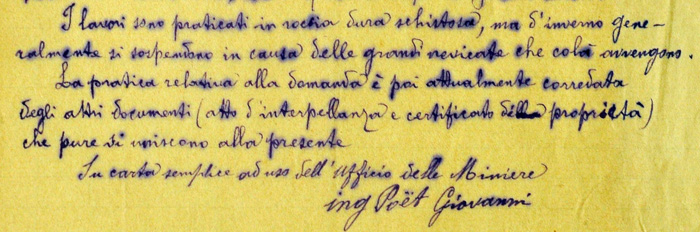 I lavori sono praticati in roccia dura schistosa, ma d'inverno gene-
ralmente si sospendono in causa delle grandi nevicate che colà avvengono.
La pratica relativa alla domanda è poi attualmente corredata
degli altri documenti (atto d'interpellanza e certificato della proprietà)
che pure si uniscono alla presente
In carta semplice ad uso dell'Ufficio delle Miniere
ing Poët Giovanni